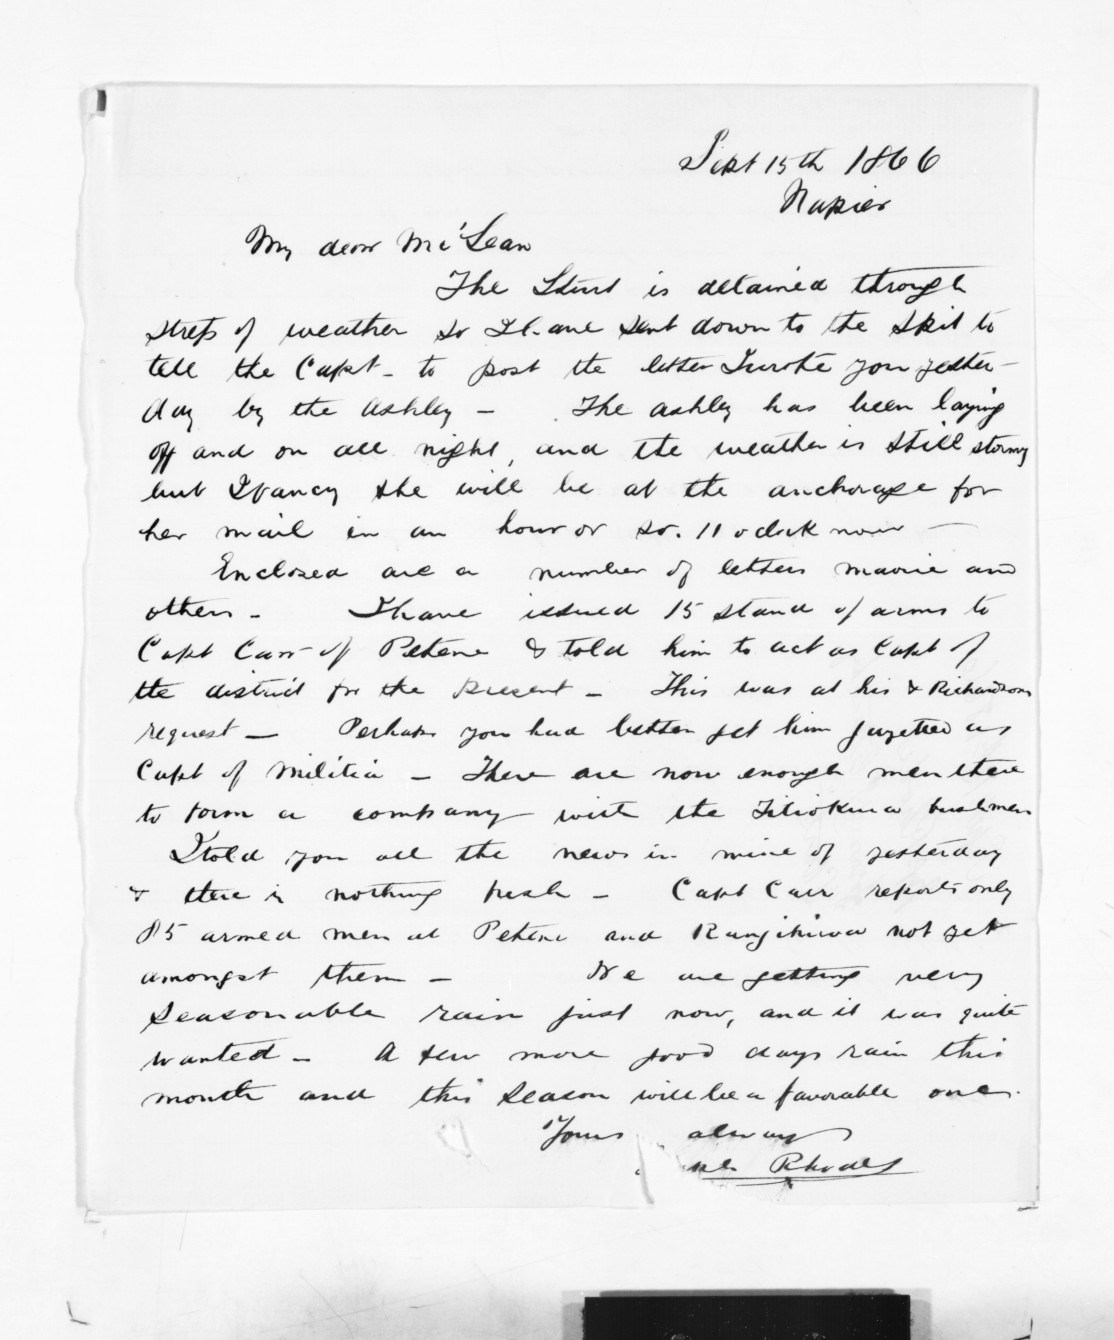 Sept 15th 1866
Napier
My dear McLean
The Sturt is detained through
stress of weather so I have sent down to the Spit to
tell the Capt - to post the letter I wrote you yester-
day by the Ashley - The Ashley has been laying
off and on all night, and the weather is still stormy
but I fancy she will be at the anchorage for
her mail in an hour or so. 11 oclock now -
Enclosed are a number of letters maorie and
others - I have issued 15 stand of arms to
Capt Carr of Petene & told him to act as Capt of
the district for the present - This was at his & Richardsons
request - Perhaps you had better get him gazetted as
Capt of Militia - There are now enough men there
to form a company with the Titiokura bushmen
I told you all the news in mine of yesterday
& there is nothing fresh - Capt Carr reports only
85 armed men at Petene and Rangihiroa not yet
amongst them - We are getting very
seasonable rain just now, and it was quite
wanted - A few more good days rain this
month and this season will be a favorable one.
Yours always
Rhodes